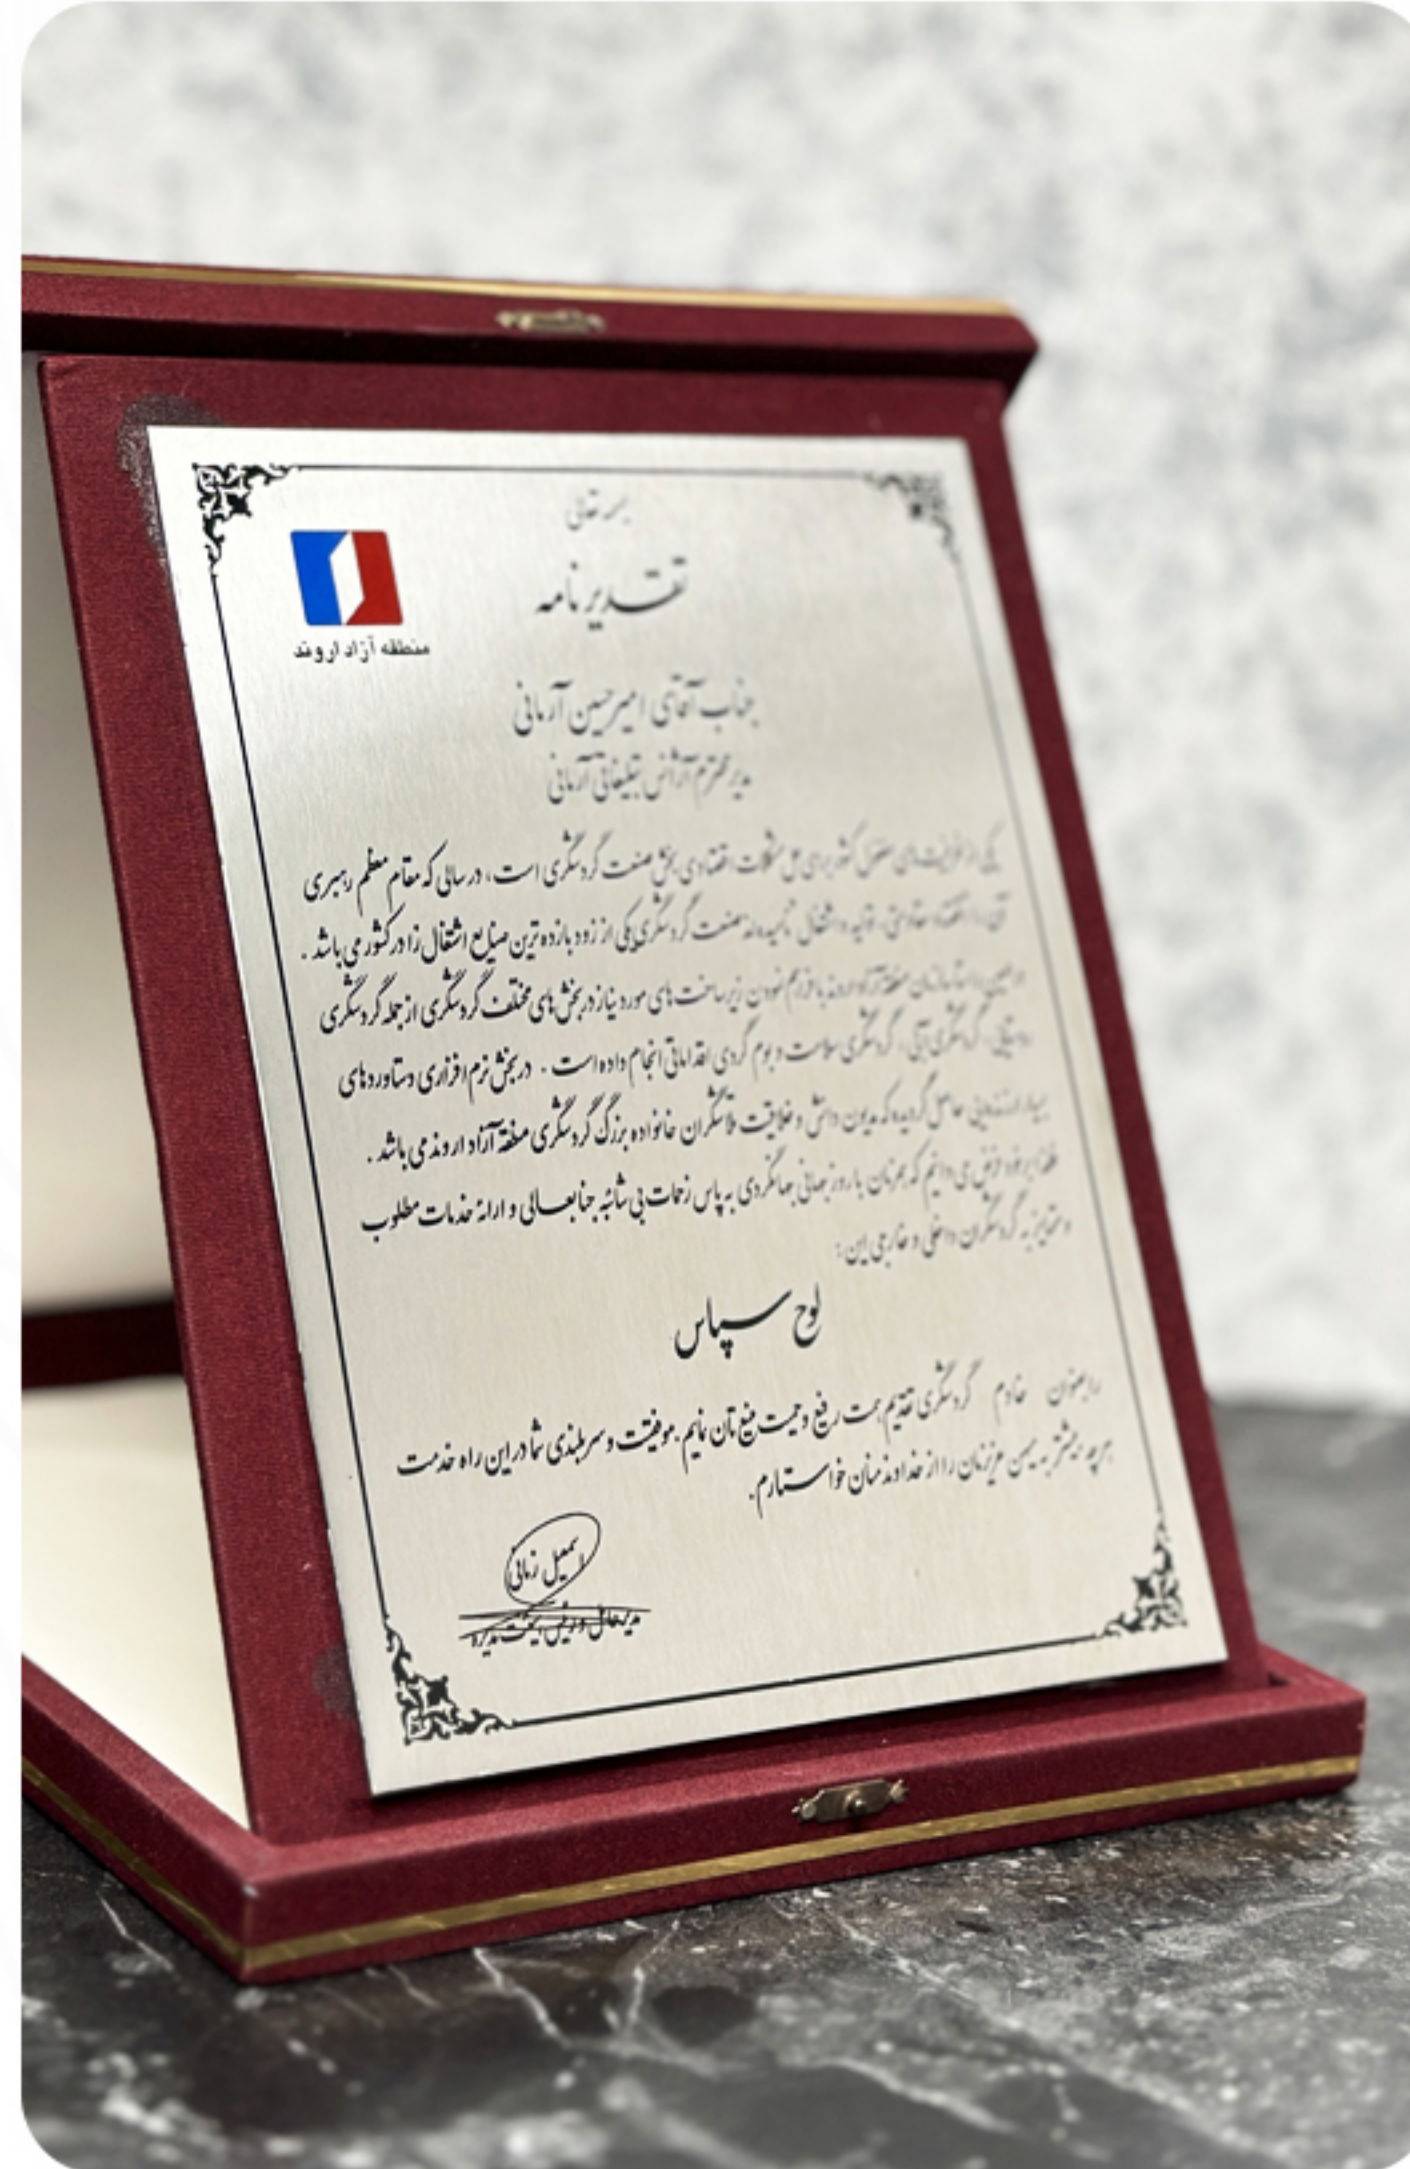 بسمه تعالی
تقدیرنامه
منطقه آزاد اروند
جناب آقای امیرحسین آرمانی
مدیر محترم آژانس تبلیغاتی آرمانی
یکی از ظرفیت‌های کشور برای حل مشکلات اقتصادی بخش صنعت گردشگری است، در سالی که مقام معظم رهبری
آن را اقتصاد مقاومتی، تولید و اشتغال نامیده‌اند صنعت گردشگری یکی از زود بازده ترین صنایع اشتغال زا در کشور می باشد .
در همین راستا سازمان منطقه آزاد اروند با فراهم نمودن زیرساخت های مورد نیاز در بخش های مختلف گردشگری از جمله گردشگری
گردشگری آبی، گردشگری سلامت و بوم گردی اقداماتی انجام داده است . در بخش نرم افزاری دستاوردهای
بسیار ارزنده‌ای حاصل گردیده که مدیون دانش و خلاقیت تلاشگران خانواده بزرگ گردشگری منطقه آزاد اروند می باشد .
لذا بر خود فرض می دانم که همزمان با روز جهانی جهانگردی به پاس زحمات بی شائبه جنابعالی و ارائه خدمات مطلوب
و متمایز به گردشگران داخلی و خارجی این:
لوح سپاس
را بعنوان خادم گردشگری تقدیم همت رفیع و حمیت منیع تان نمایم. موفقیت و سربلندی شما در این راه خدمت
هرچه بیشتر به میهن عزیزمان را از خداوند منان خواستارم.
اسمعیل زمانی
مدیرعامل و رئیس هیئت مدیره